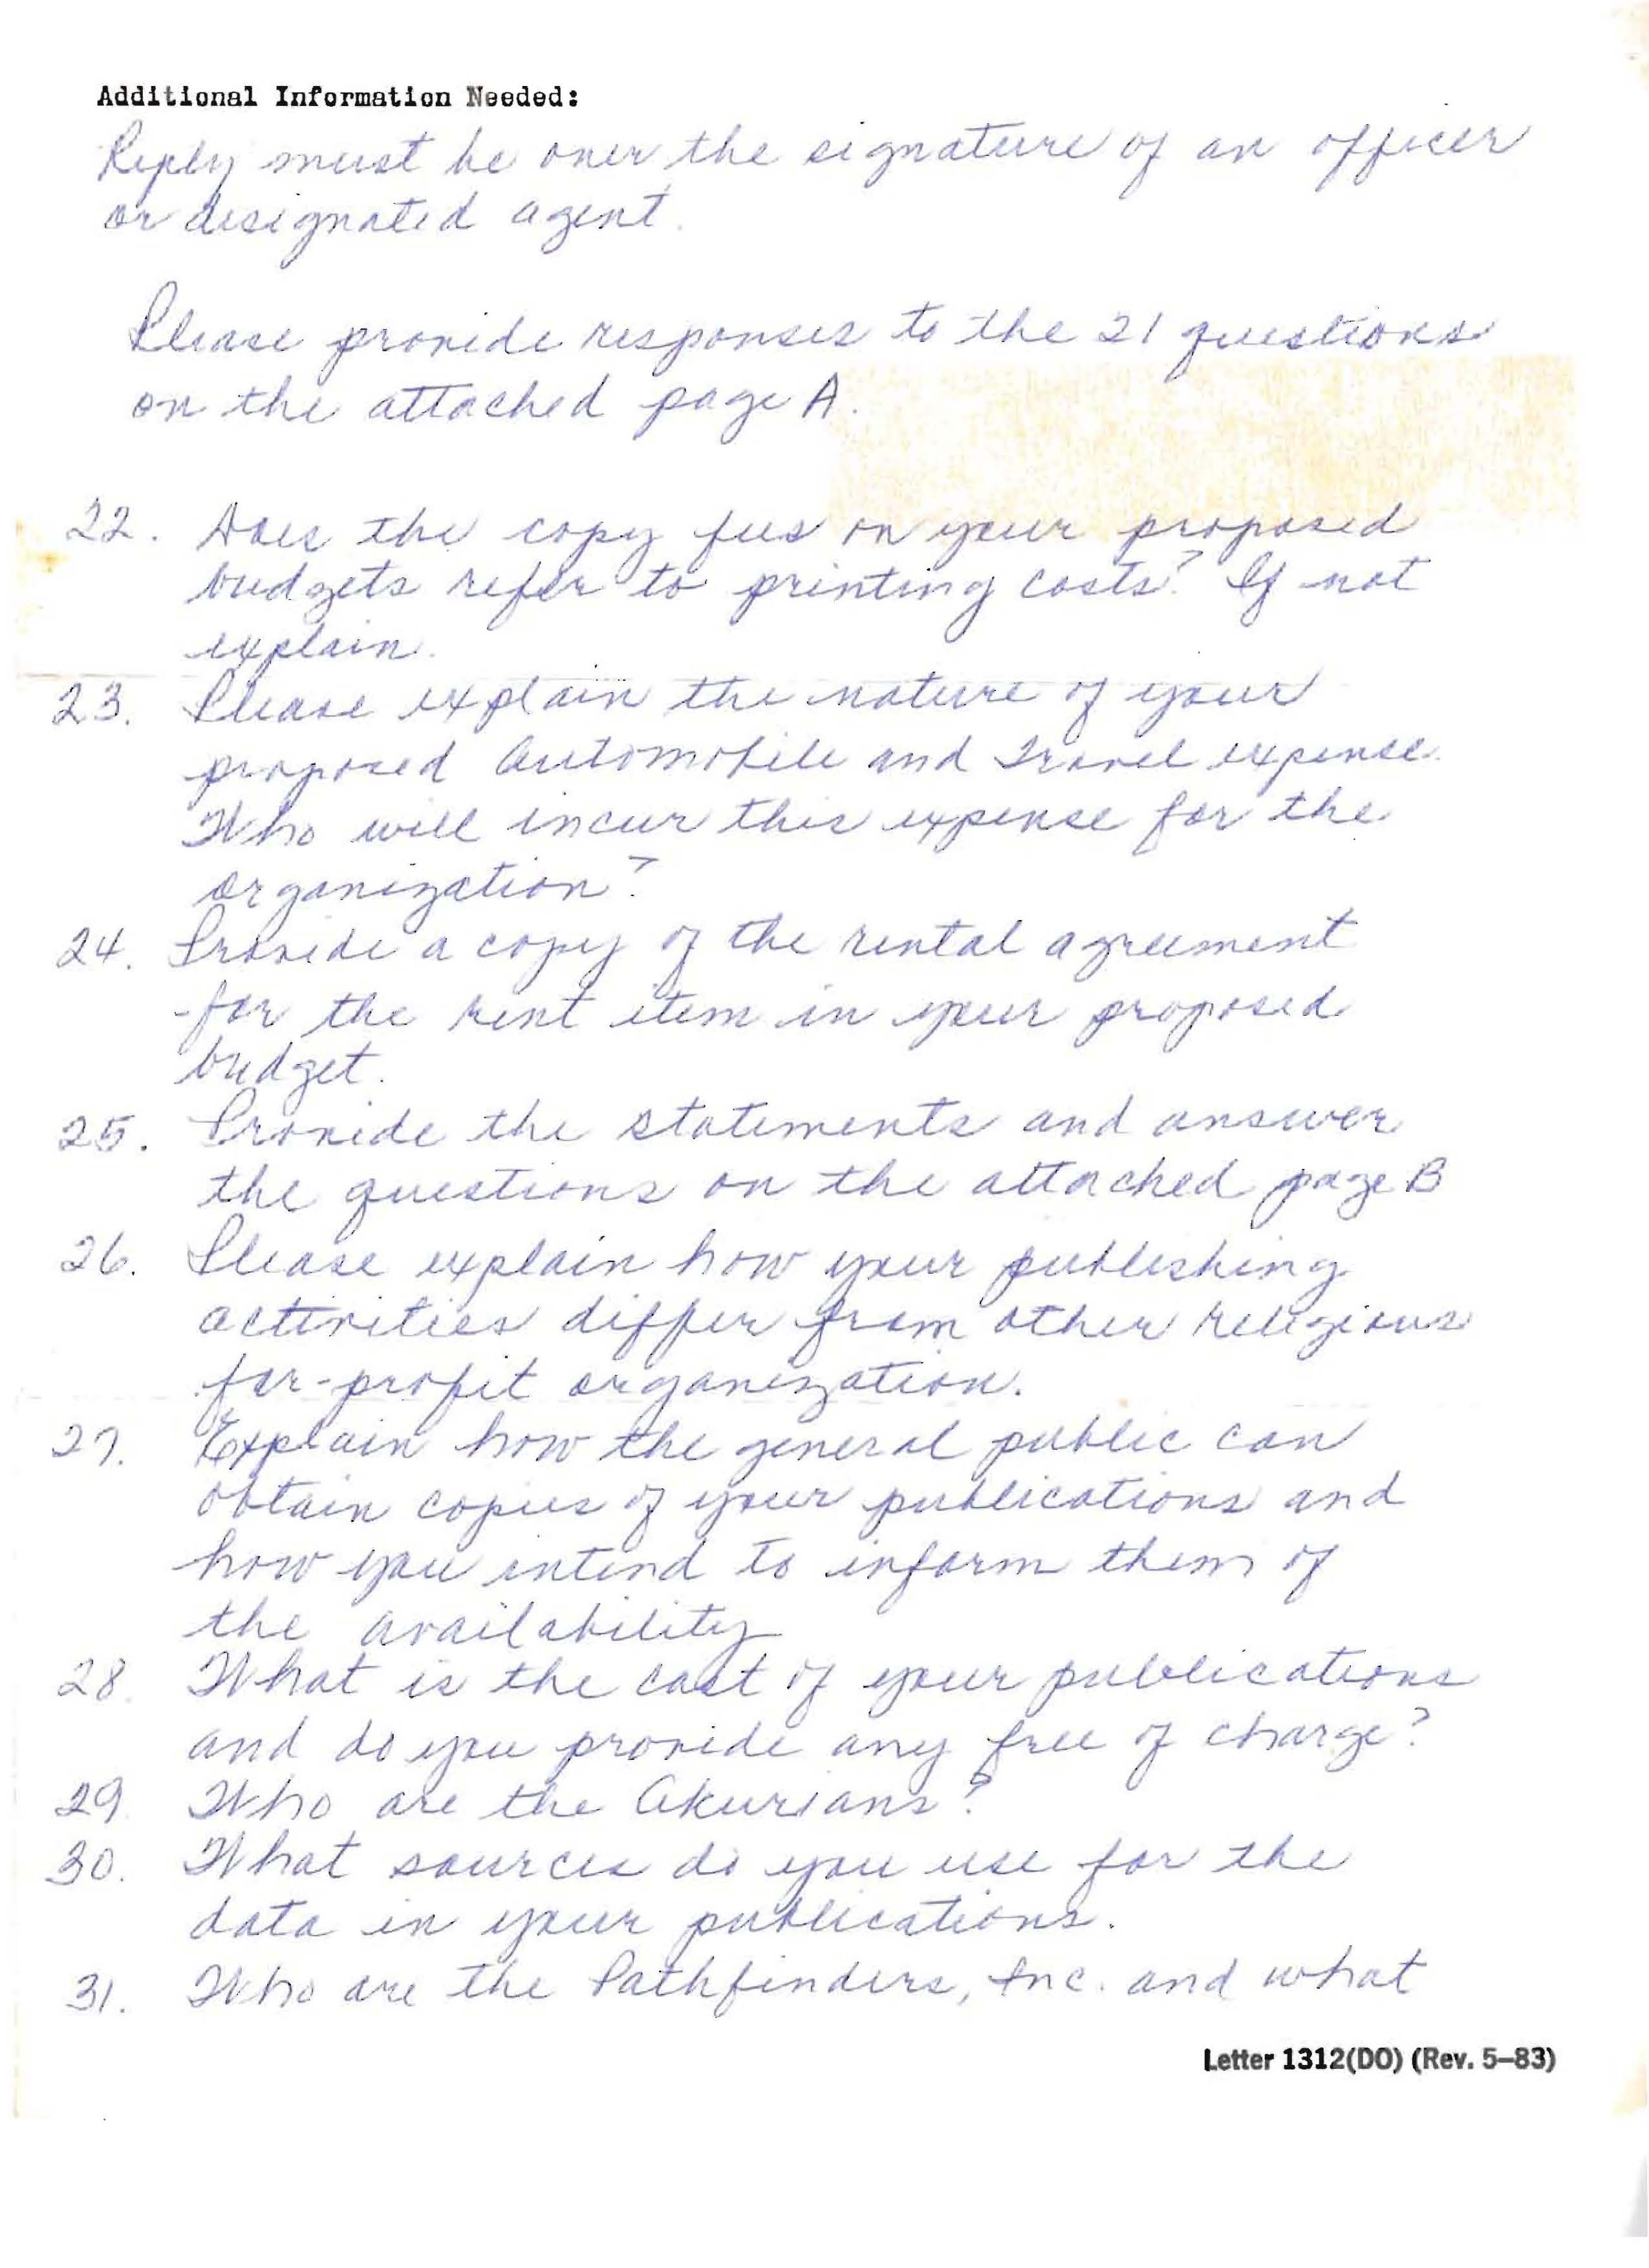 Additional Information Needed:
Reply must be over the signature of an officer
or designated agent.
Please provide responses to the 21 questions
on the attached page A.
22. Does the copy fees on your proposed
budgets refer to printing costs? If not
explain.
23. Please explain the nature of your
proposed Automobile and Travel expense.
Who will incur this expense for the
organization?
24. Provide a copy of the rental agreement
for the rent item in your proposed
budget.
25. Provide the statements and answer
the questions on the attached page B
26. Please explain how your publishing
activities differ from other religious
for-profit organization.
27. Explain how the general public can
obtain copies of your publications and
how you intend to inform them of
the availability
28. What is the cost of your publications
and do you provide any free of charge?
29. Who are the Akurians?
30. What sources do you use for the
data in your publications.
31. Who are the Pathfinders, Inc. and what
Letter 1312(DO) (Rev. 5-83)